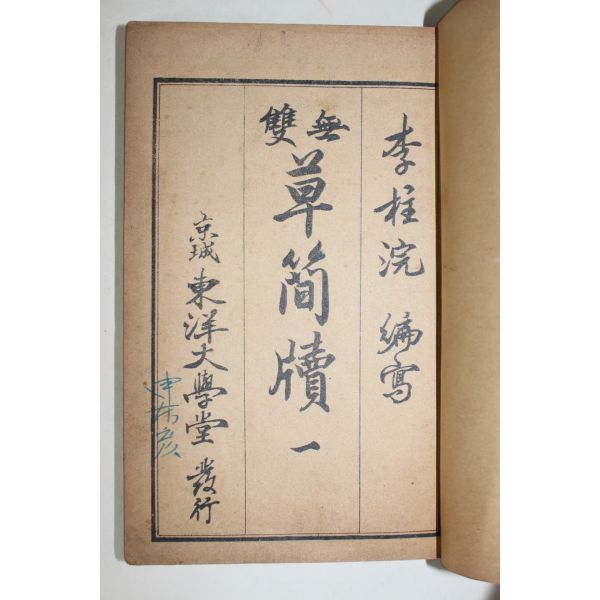 李柱浣 編寫
無雙
草簡牘 一
京城 東洋大學堂 發行